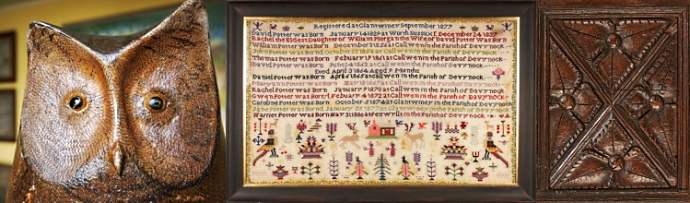 Registered at Glantwrney September 1877
David Potter was Born January at Worth Sussex December 24 1837
Rachel the Eldest Daughter of William Morgan the Wife of David Potter Was Born
William Potter was Born December at Callwen in the Parish of Devynock
John Potter was Born October at Callwen in the Parish of Devynock
Thomas Potter was Born February at Callwen in the Parish of Devynock
David Potter was Born June at Callwen in the Parish of Devynock
Died April 3 1864 Aged Months
Daniel Potter was Born April Callwen in the Parish of Devynock
Potter was Born May at Callwen in the Parish of Devynock
Rachel Potter was Born January at Callwen in the Parish of Devynock
Gwen Potter was Born February 4 1872 at Callwen in the Parish of Devynock
Caroline Potter was Born October at Glantwrney in the Parish of Devynock
Jane Potter was Born January 1877 at Glantwrney in the Parish of Devynock
Harriet Potter was Born May in the Parish of Devynock